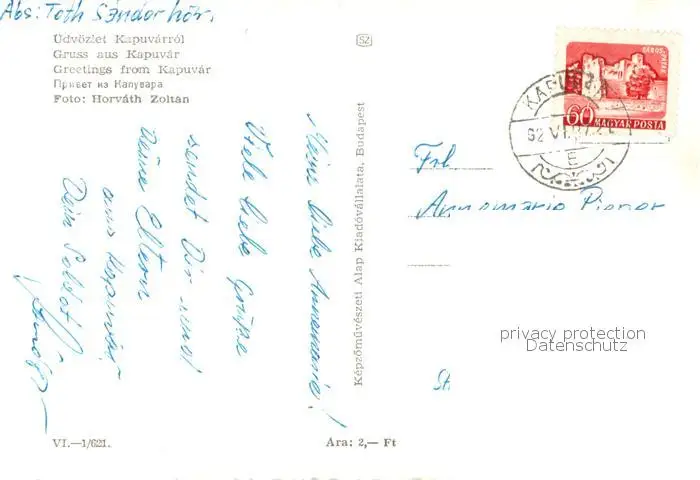 Abs: Toth Sándor hőr.
Üdvözlet Kapuvárról
Gruss aus Kapuvár
Greetings from Kapuvár
Привет из Капувара
Foto: Horváth Zoltán
Meine liebe Annemarie!
Viele liebe Grüße
sendet Dir und
Deine Eltern
aus Kapuvár
Dein Soldat
VI.—1/621.
Ára: 2,— Ft
Képzőművészeti Alap Kiadóvállalata, Budapest
SZ
SÁROSPATAK
60 MAGYAR POSTA
KAPUVÁR
E
Frl.
Annemarie
privacy protection
Datenschutz
St